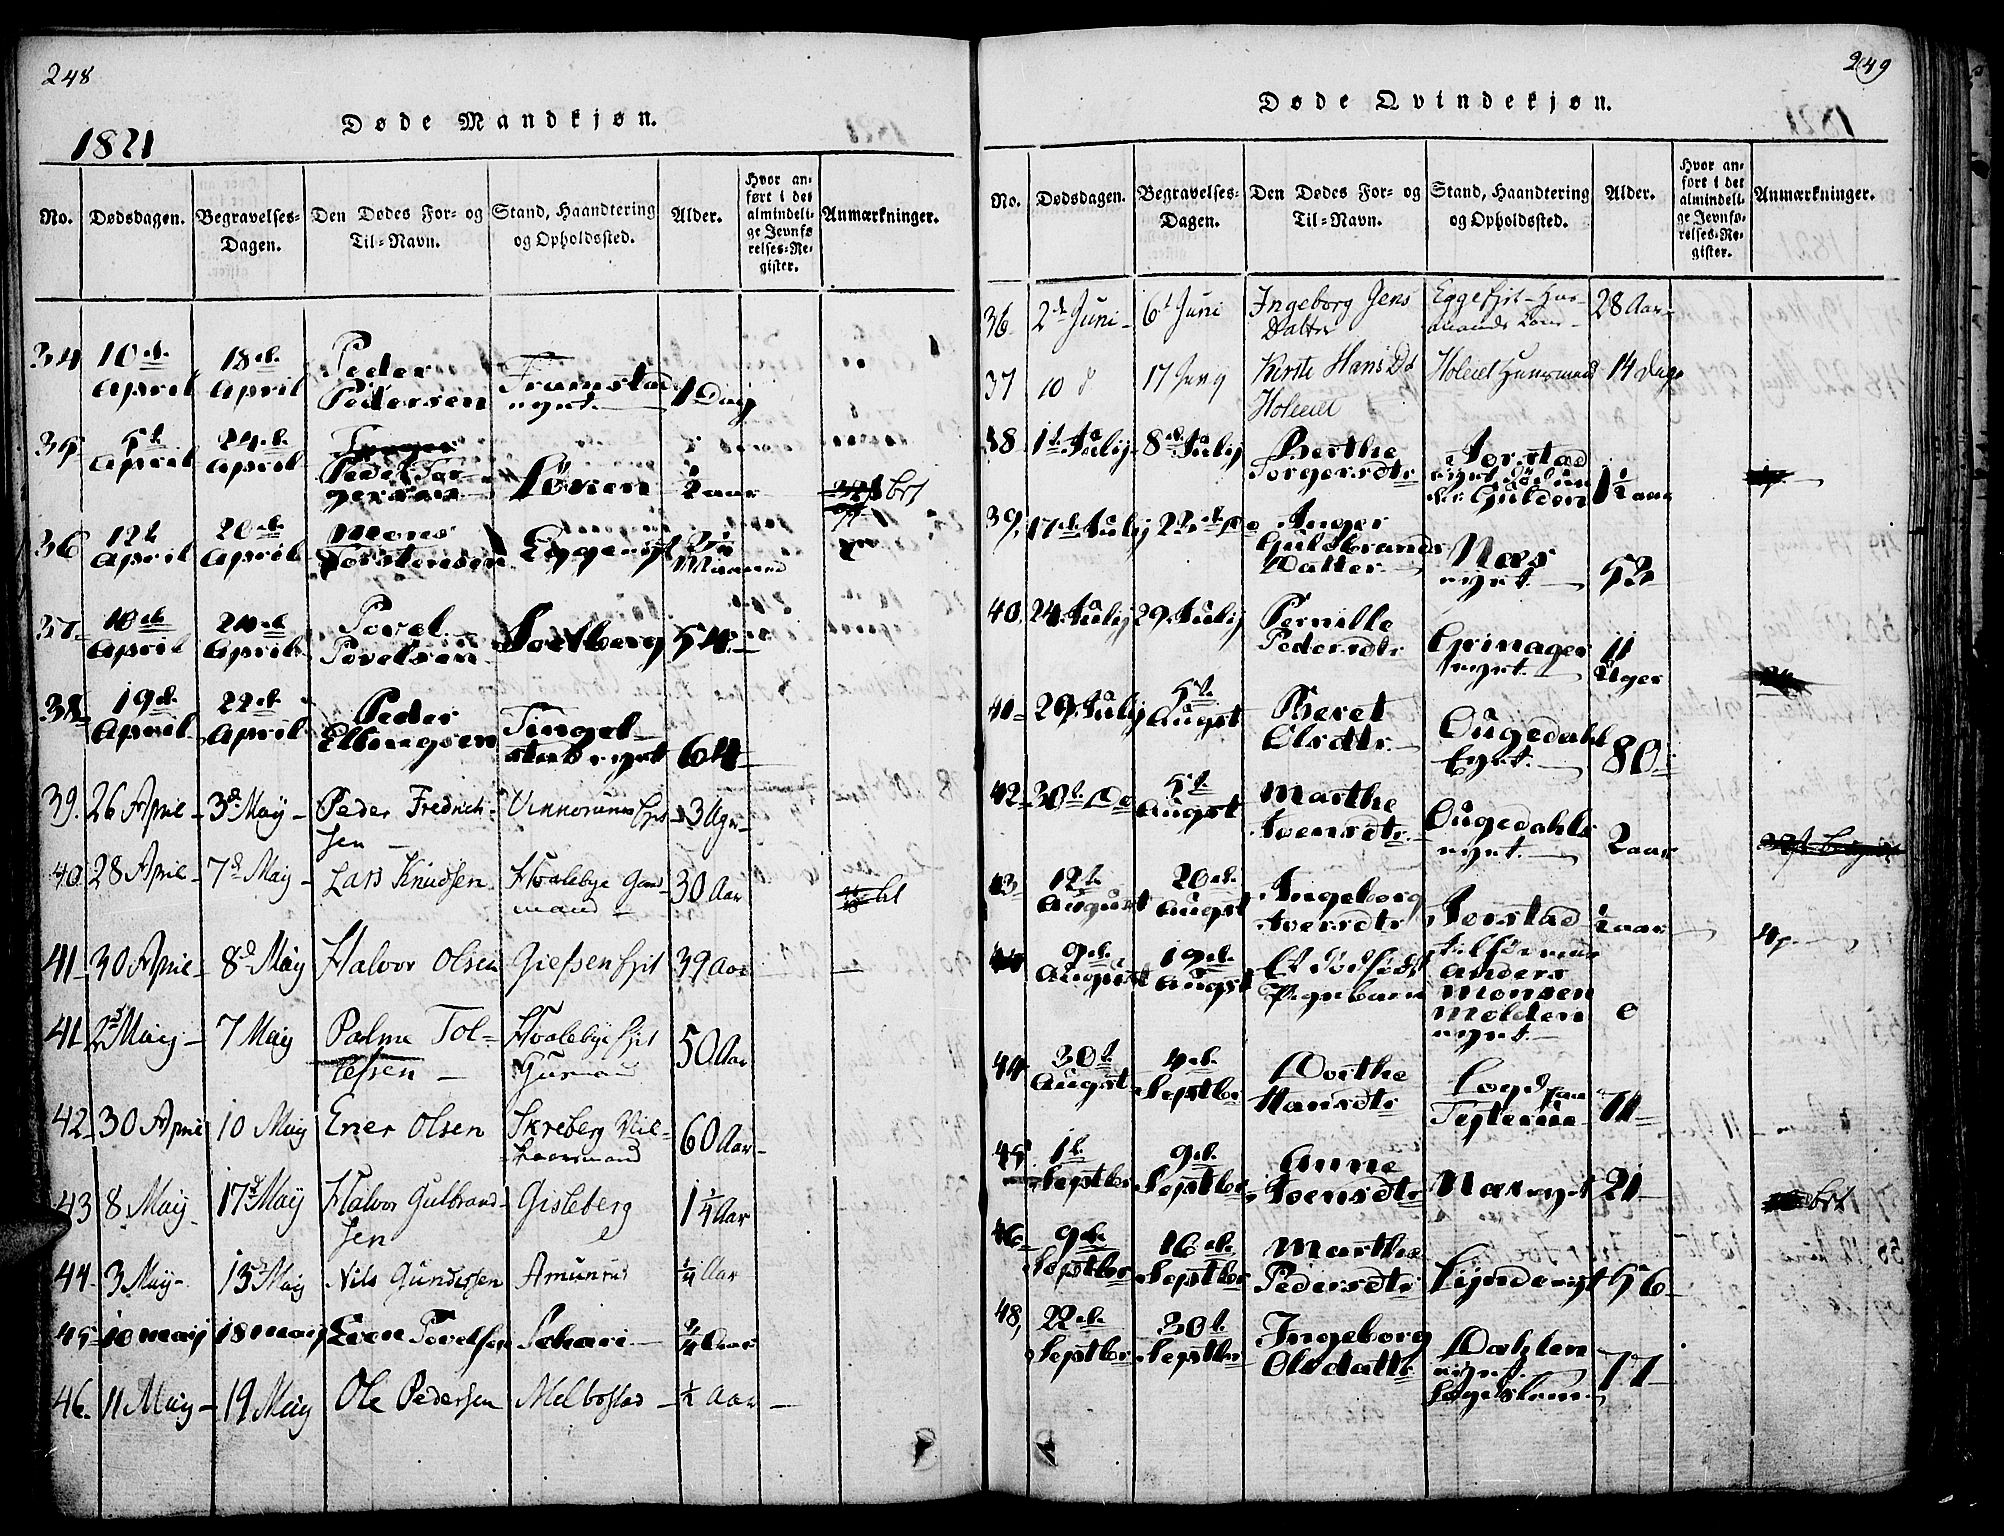 248
Døde Mandkjøn.
1821
No. Dødsdagen. Begravelses-Dagen. Den Dødes For- og Til-Navn. Stand, Haandtering og Opholdssted. Alder. Hvor anført i det almindelige Jevnførelses-Register. Anmærkninger.
34 10de April 18de April Peder Pedersen Framstad eyet 1 Dag
35 5t April 24de April Peder Torgersen Søeien ½ aar brt
36 12t April 20de April Mons Torstensen Eggeeiet Maaned
37 10de April 24de April Povel Povelsen Soelberg 54
38 19de April 22de April Peder Ellingsen Tingelstad eyet 64
39. 26 April 3d May Peder Fredrichsen 3 Uger
40. 28 April 7d May Lars Knudsen Hvalebye Gaardmand 30 Aar
41 30 April 8d May Halvor Olsen Giefsen Ejet 39 Aar
41 2d May 7 May Palme Tollefsen Hvalebye Ejet Husmand 50 Aar
42 30 April 10 May Ener Olsen Skreberg 60 Aar
43 8 May 17d May Halvor Gulbrandsen Gisleberg 1¼ Aar
44 3 May 13d May Nils Gundersen Amunrud ¼ Aar
45 10 maij 18 maij Even Povelsen Schari ¼ aar
46. 11 May 19 May Ole Pedersen Melbostad ½ Aar
249
Døde Qvindekjøn.
No. Dødsdagen. Begravelses-Dagen. Den Dødes For- og Til-Navn. Stand, Haandtering og Opholdssted. Alder. Hvor anført i det almindelige Jevnførelses-Register. Anmærkninger.
36 2d Juni 6t Juni Ingeborg Jens Datter Eggeejet Husmands Kone 28 Aar
37 10 17 Kirsti Hans D. Holeiet 14 Dage
38 1t Julij 8de Julij Berthe Torgersdtr Gulden 1½ aar
39 17de Julij 22de Do Inger Guldbrands Datter Næs eyet 53
40. 24 Julij 29 Julij Pernille Pedersdtr Grinager eyet 11 Uger
41 29 Julij 5t Augst Beret Olsdtr Ougedahls Eyet 80
42 30t Do 5t Augst Marthe Svensdtr Ougedahls eyet 2 aar
43 12t August 20de Augst Ingeborg Iversdtr Rorstad ½ aar
9de August 19de Augst Et Dødfødt Pigebarn Anders Monsen Molden eyet 0
44 30t Augst 4de Septbr Dorthe Hansdtr Logd paa 71
45 1t Septbr 9de Septbr Anne Svensdtr Næs eyet 21 brt
46 9de Septbr 16de Septbr Marthe Pedersdtr 56
48, 22de Septbr 30t Septbr Ingeborg Olsdatter Dahlen eyet 77